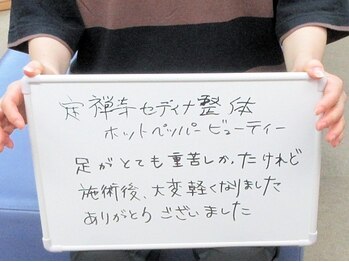 定禅寺セディナ整体
ホットペッパービューティー
足がとても重苦しかったけれど
施術後、大変軽くなりました
ありがとうございました